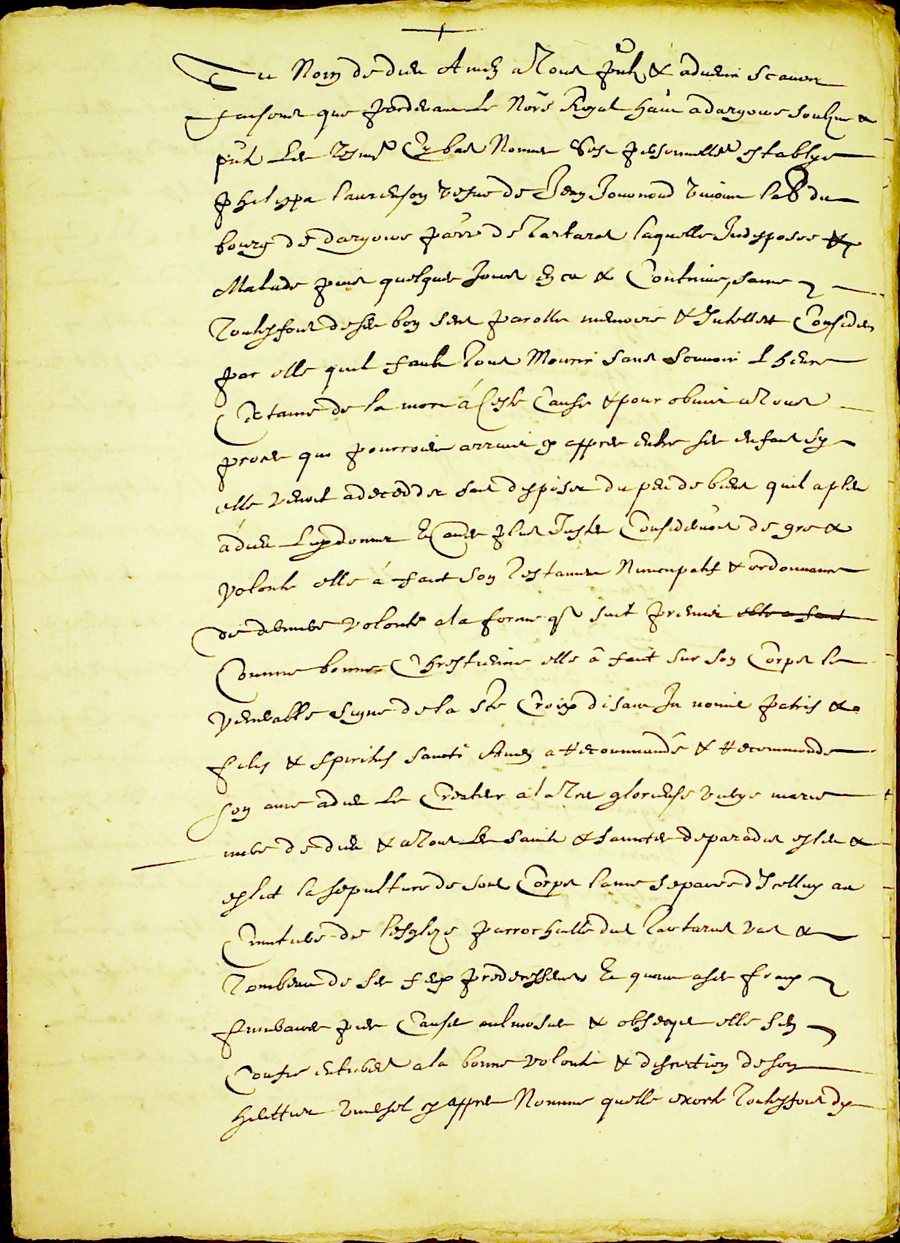 Au Nom de dieu Amen a Tous & advenir scavoir
faisons que pardevant Le Nore Royal
Les Tesmo Cy bas Nommes personnelle establye
phelippa vefve de Jean
bourg de dargoire parre de Tartaras laquelle Indisposee
Malade puis quelque Jours en ca & Contrinct, saine
Toutesfois de ses bon sens parolle memoire & Intellect Consideré
par elle quil fault Tous Mourir sans Scavoir Lheure
Certaine de la mort á Ceste Cause & pour obvier a Tous
proces qui pourroient arriver cy appres entre ses enfans sy
elle venoit a decedder sans disposer du peu de biens quil a pleu
á dieu Luy donner Et aultres plus Justes Considerãons de gre &
volonte elle á faict Son Testament Nuncupatif & ordonnance
de derniere volonte a la forme qe suit premier elle a faict
Comme bonne Chrestienne elle â fait sur son Corps le
venerable Signe de la Ste Croix disant In nomine patris &
filii & spiritus sancti Amen a Recommandé & Recommande
son ame a dieu Le Createur a la Tres glorieuse vierge marie
mere de dieu & a Tous Les Saints & Sainctes de paradis esleu &
eslict la sepulture de son Corps lame separee dIcelluy au
Cimetiere de lesglize parrochialle dud Tartaras &
Tombeau de ses feux predecesseurs Et quant a ses fraix
funeraires pies Causes aulmosne & obseque elle sen
Confie a la bonne volonte & discretion de son
herittier cy appres Nomme quelle exorte Toutesfois dy